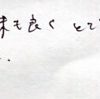 味も良く とて
..